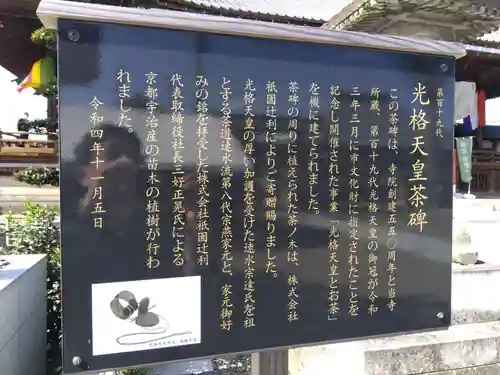 第百十九代
光格天皇茶碑
この茶碑は、寺院創建五五〇周年と当寺
所蔵、第百十九代光格天皇の御冠が令和
三年三月に市文化財に指定されたことを
記念し開催された事業「光格天皇とお茶」
を機に建てられました。
茶碑の周りに植えられた茶ノ木は、株式会社
祇園辻利よりご寄贈賜りました。
光格天皇の厚い加護を受けた速水宗達氏を祖
とする茶道速水流第八代宗燕家元と、家元御好
みの銘を拝受した株式会社祇園辻利
代表取締役社長三好正晃氏による
京都宇治産の苗木の植樹が行わ
れました。
令和四年十一月五日